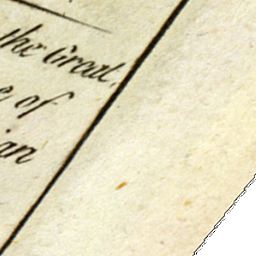 the Great,
of
an